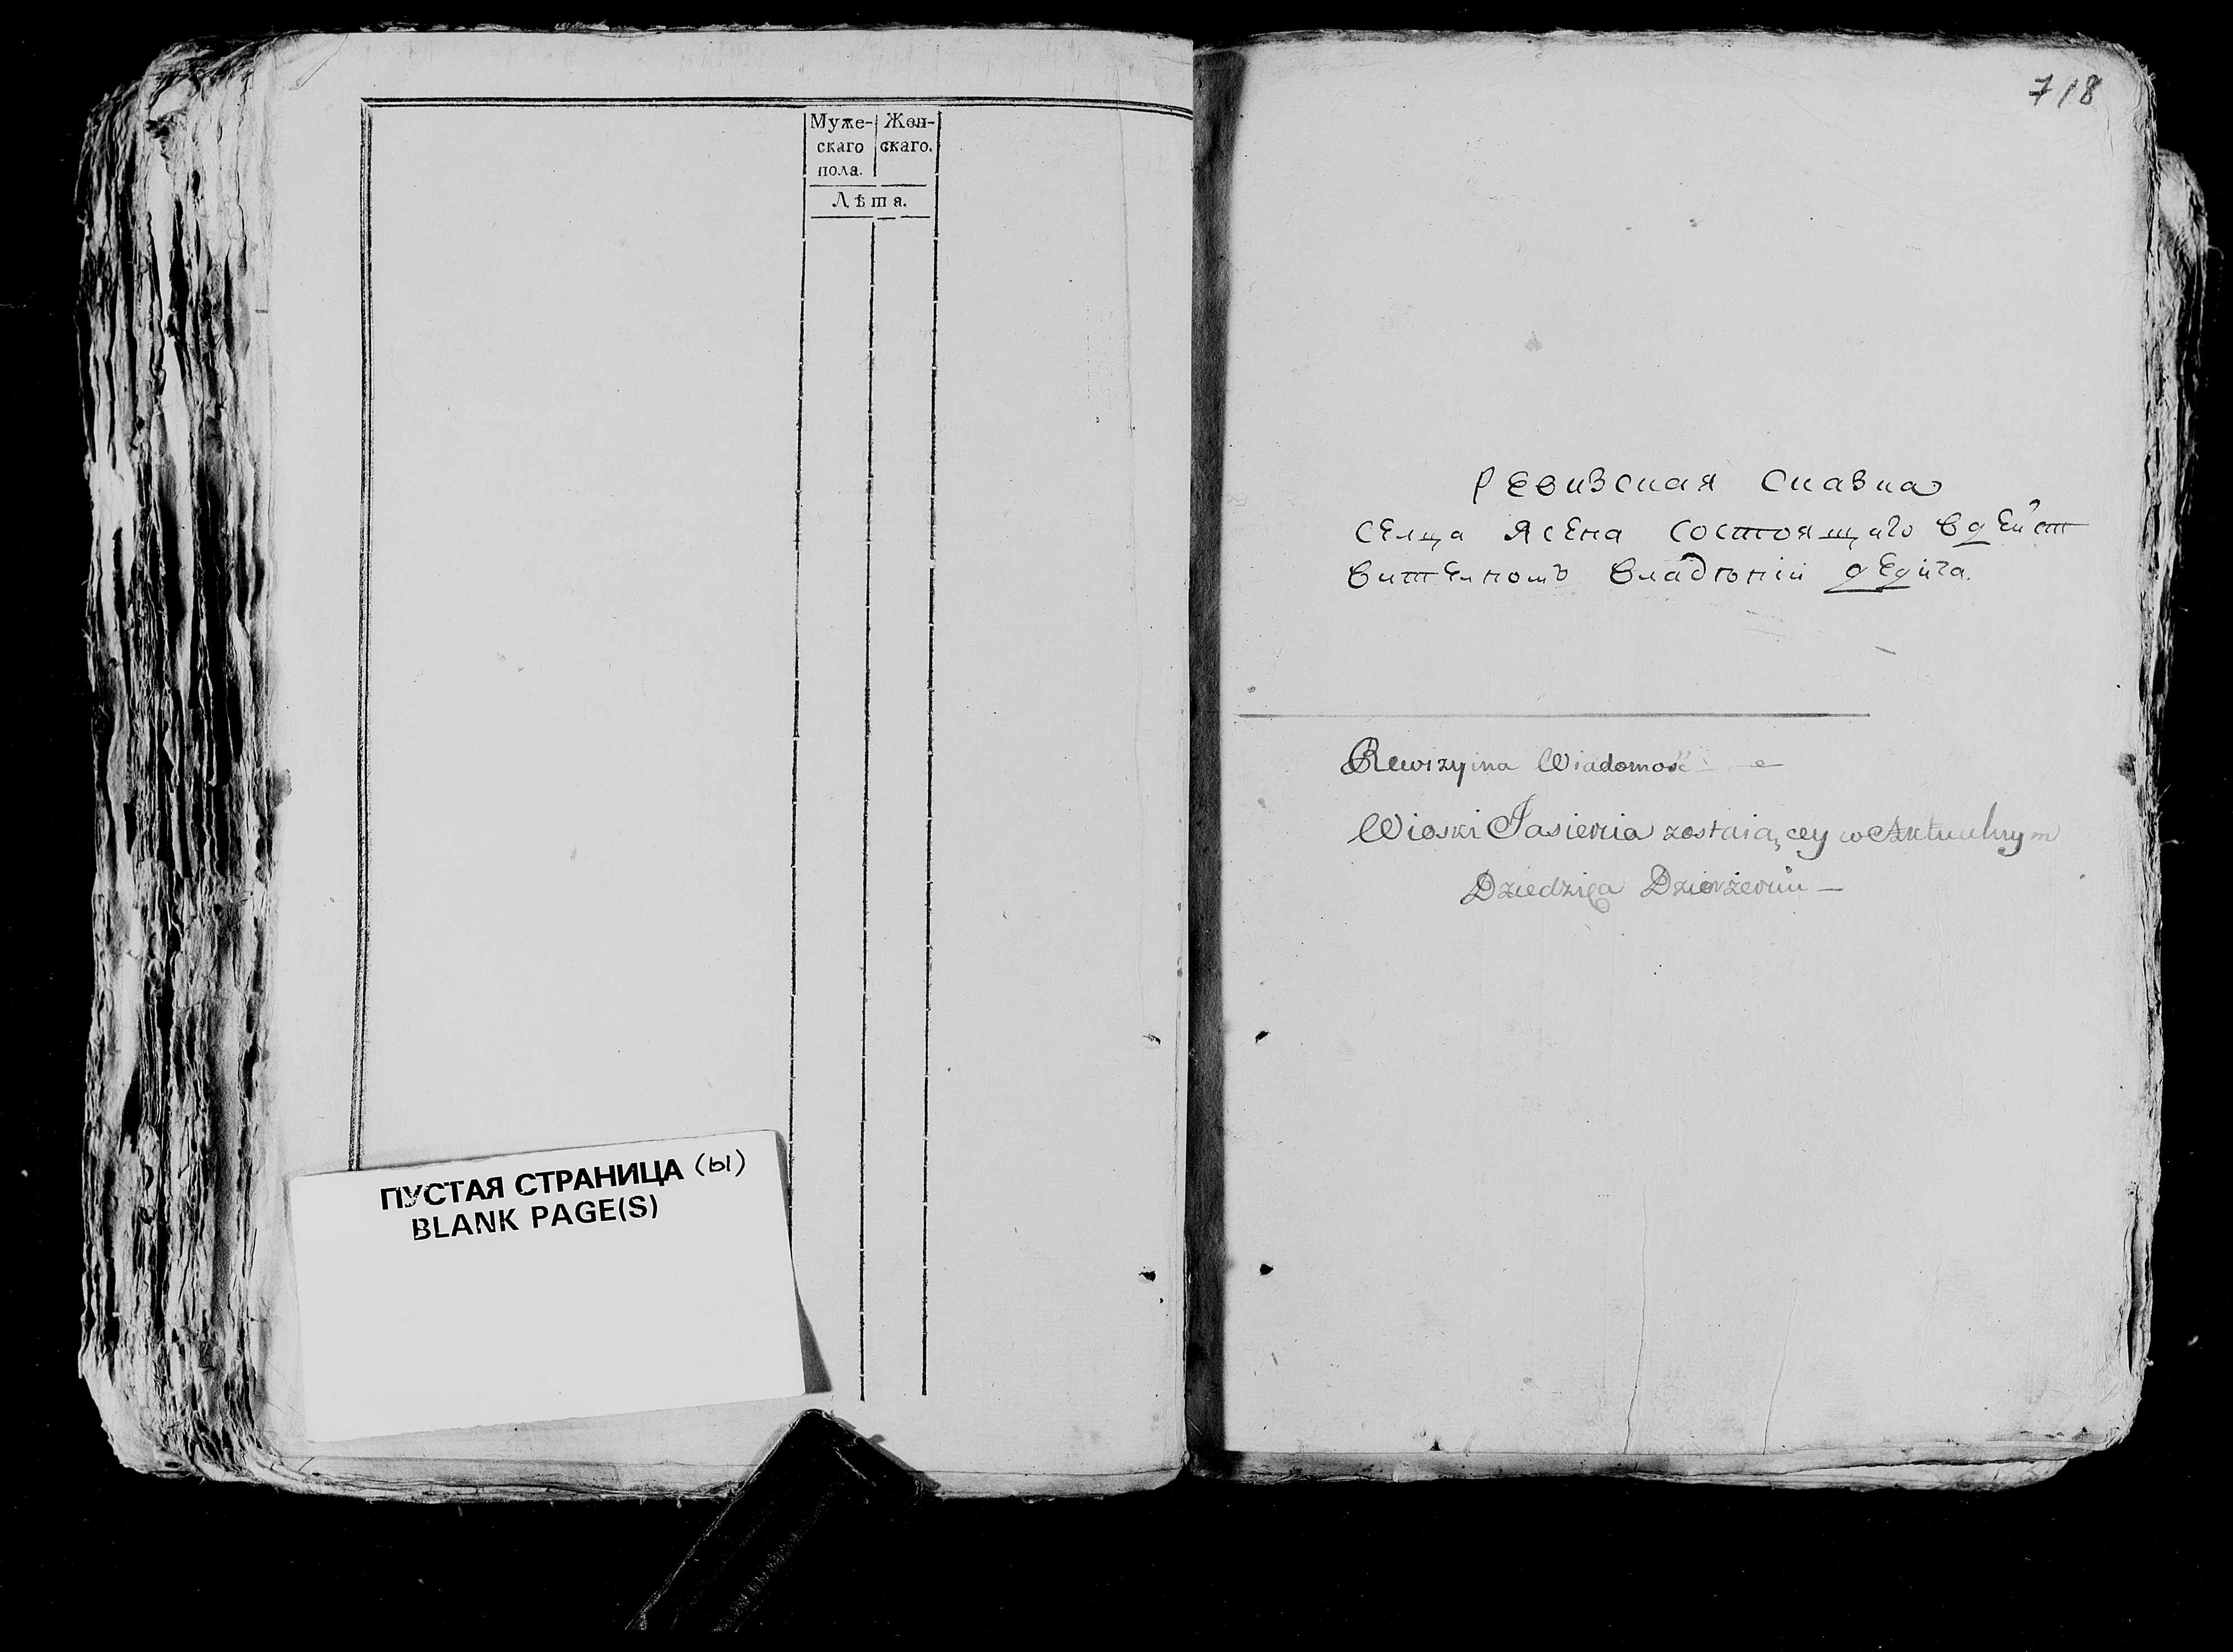 Муже-
скаго
пола.
Жен-
скаго.
Лѣта.
ПУСТАЯ СТРАНИЦА (ы)
BLANK PAGE(S)
718
Ревизская Сказка
Селца Ясена состоящаго вдейст
вителномъ владѣніи дедича.
Rewizyina Wiadomość
Wioski Jasienia zostaiącey w Aktualnym
Dziedzica Dzierżeniu —